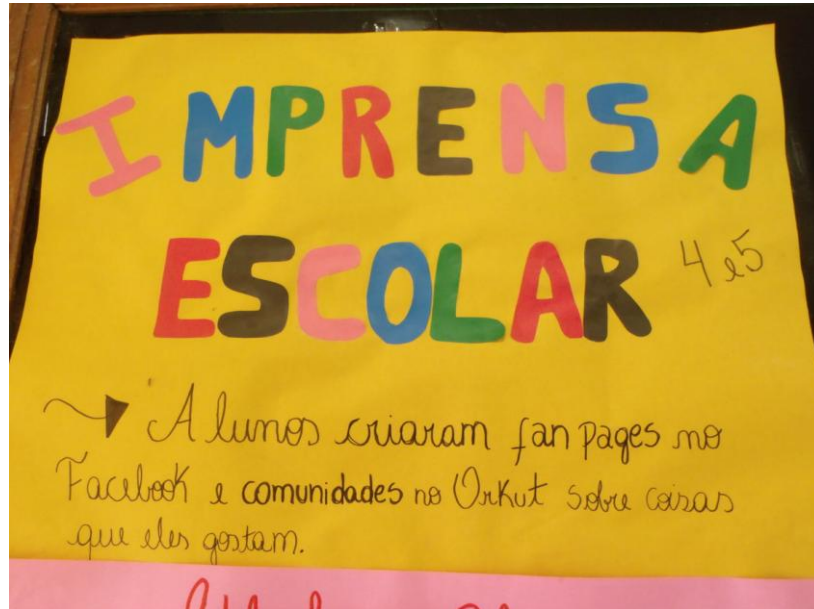 IMPRENSA
ESCOLAR 4 e 5
Alunos criaram fan pages no
Facebook e comunidades no Orkut sobre coisas
que eles gostam.